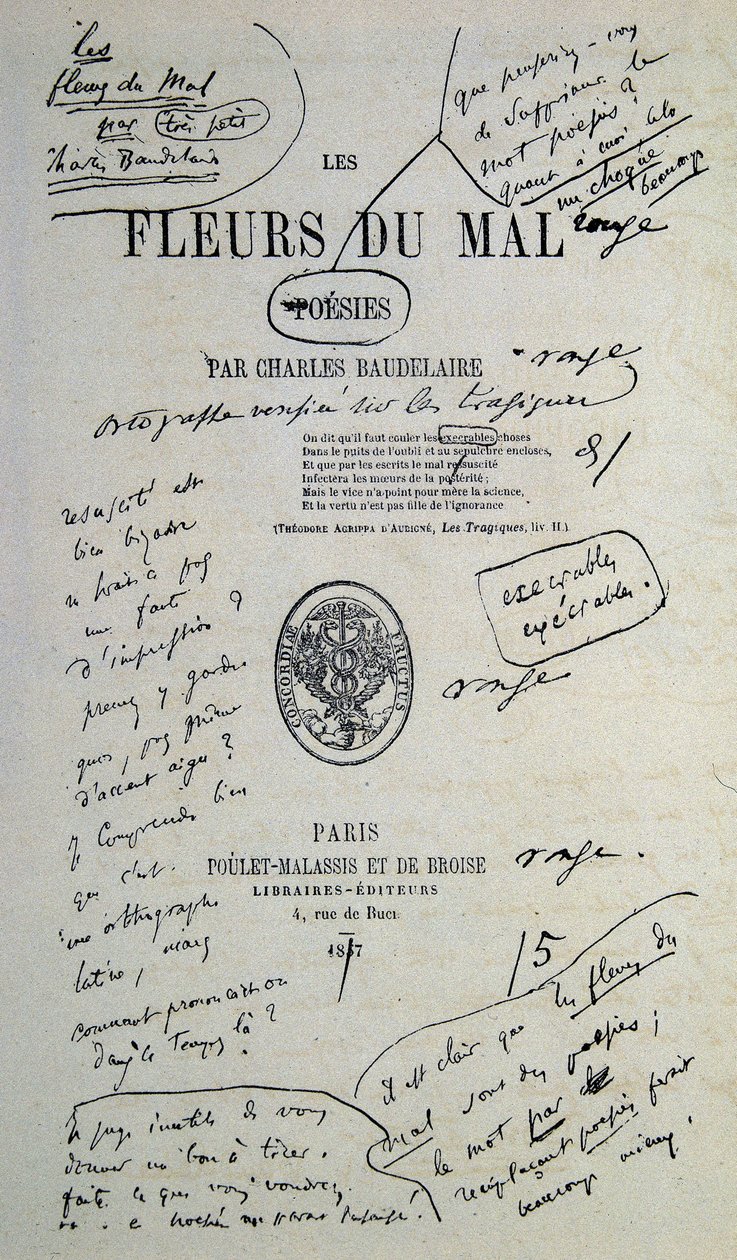 les
fleurs du Mal
par très petit
Charles Baudelaire
que penseriez-vous
de Supprimer le
mot poésies?
quant à moi cela
me choque
beaucoup
LES
FLEURS DU MAL
rouge
POÉSIES
PAR CHARLES BAUDELAIRE
rouge
sur les Tragiques
On dit qu'il faut couler les execrables choses
Dans le puits de l'oubli et au sepulchre encloses,
Et que par les escrits le mal resuscité
Infectera les mœurs de la postérité;
Mais le vice n'a point pour mère la science,
Et la vertu n'est pas fille de l'ignorance
(THÉODORE AGRIPPA D'AUBIGNÉ, Les Tragiques, liv. II.)
resuscité est
bien bizarre
n'y aurait-il pas
une faute
d'impression?
prenez y garde
quoi, pas même
d'accent aigu?
je Comprends bien
que c'est
une orthographe
latine, mais
comment prononçait-on
dans ce Temps là?
execrables
exécrables.
CONCORDIAE FRUCTUS
rouge
PARIS
POULET-MALASSIS ET DE BROISE
rouge.
LIBRAIRES-ÉDITEURS
4, rue de Buci.
1857
/5
il est clair que les fleurs du
mal sont des poésies;
le mot par
remplaçant poésies ferait
beaucoup mieux!
Je juge inutile de vous
donner un bon à tirer.
faites ce que vous voudrez.